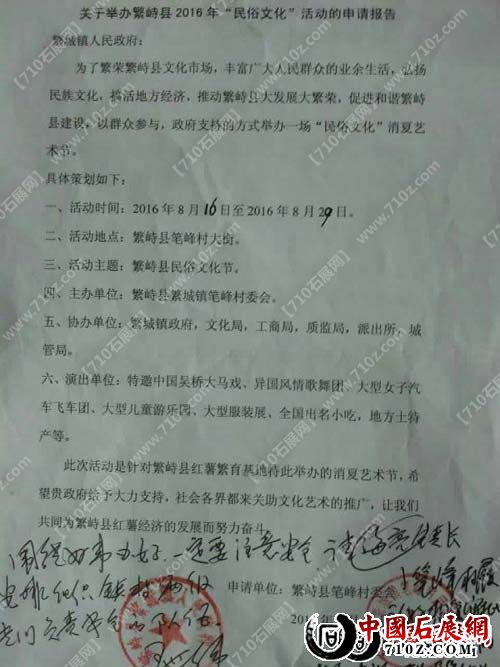 关于举办繁峙县2016年“民俗文化”活动的申请报告
繁城镇人民政府：
为了繁荣繁峙县文化市场，丰富广大人民群众的业余生活，弘扬
民族文化，搞活地方经济，推动繁峙县大发展大繁荣，促进和谐繁峙
县建设，以群众参与，政府支持的方式举办一场“民俗文化”消夏艺
术节。
具体策划如下：
一、活动时间：2016年8月16日至2016年8月29日。
二、活动地点：繁峙县笔峰村大街。
三、活动主题：繁峙县民俗文化节。
四、主办单位：繁峙县繁城镇笔峰村委会。
五、协办单位：繁城镇政府，文化局，工商局，质监局，派出所，城
管局。
六、演出单位：特邀中国吴桥大马戏、异国风情歌舞团、大型女子汽
车飞车团、大型儿童游乐园、大型服装展、全国出名小吃，地方土特
产等。
此次活动是针对繁峙县红薯繁育基地特此举办的消夏艺术节，希
望贵政府给予大力支持，社会各界都来关助文化艺术的推广，让我们
共同为繁峙县红薯经济的发展而努力奋斗。
一定要注意安全
申请单位：繁峙县笔峰村委会
201
【710石展网】www.710z.com
中國石展网
www.710z.com